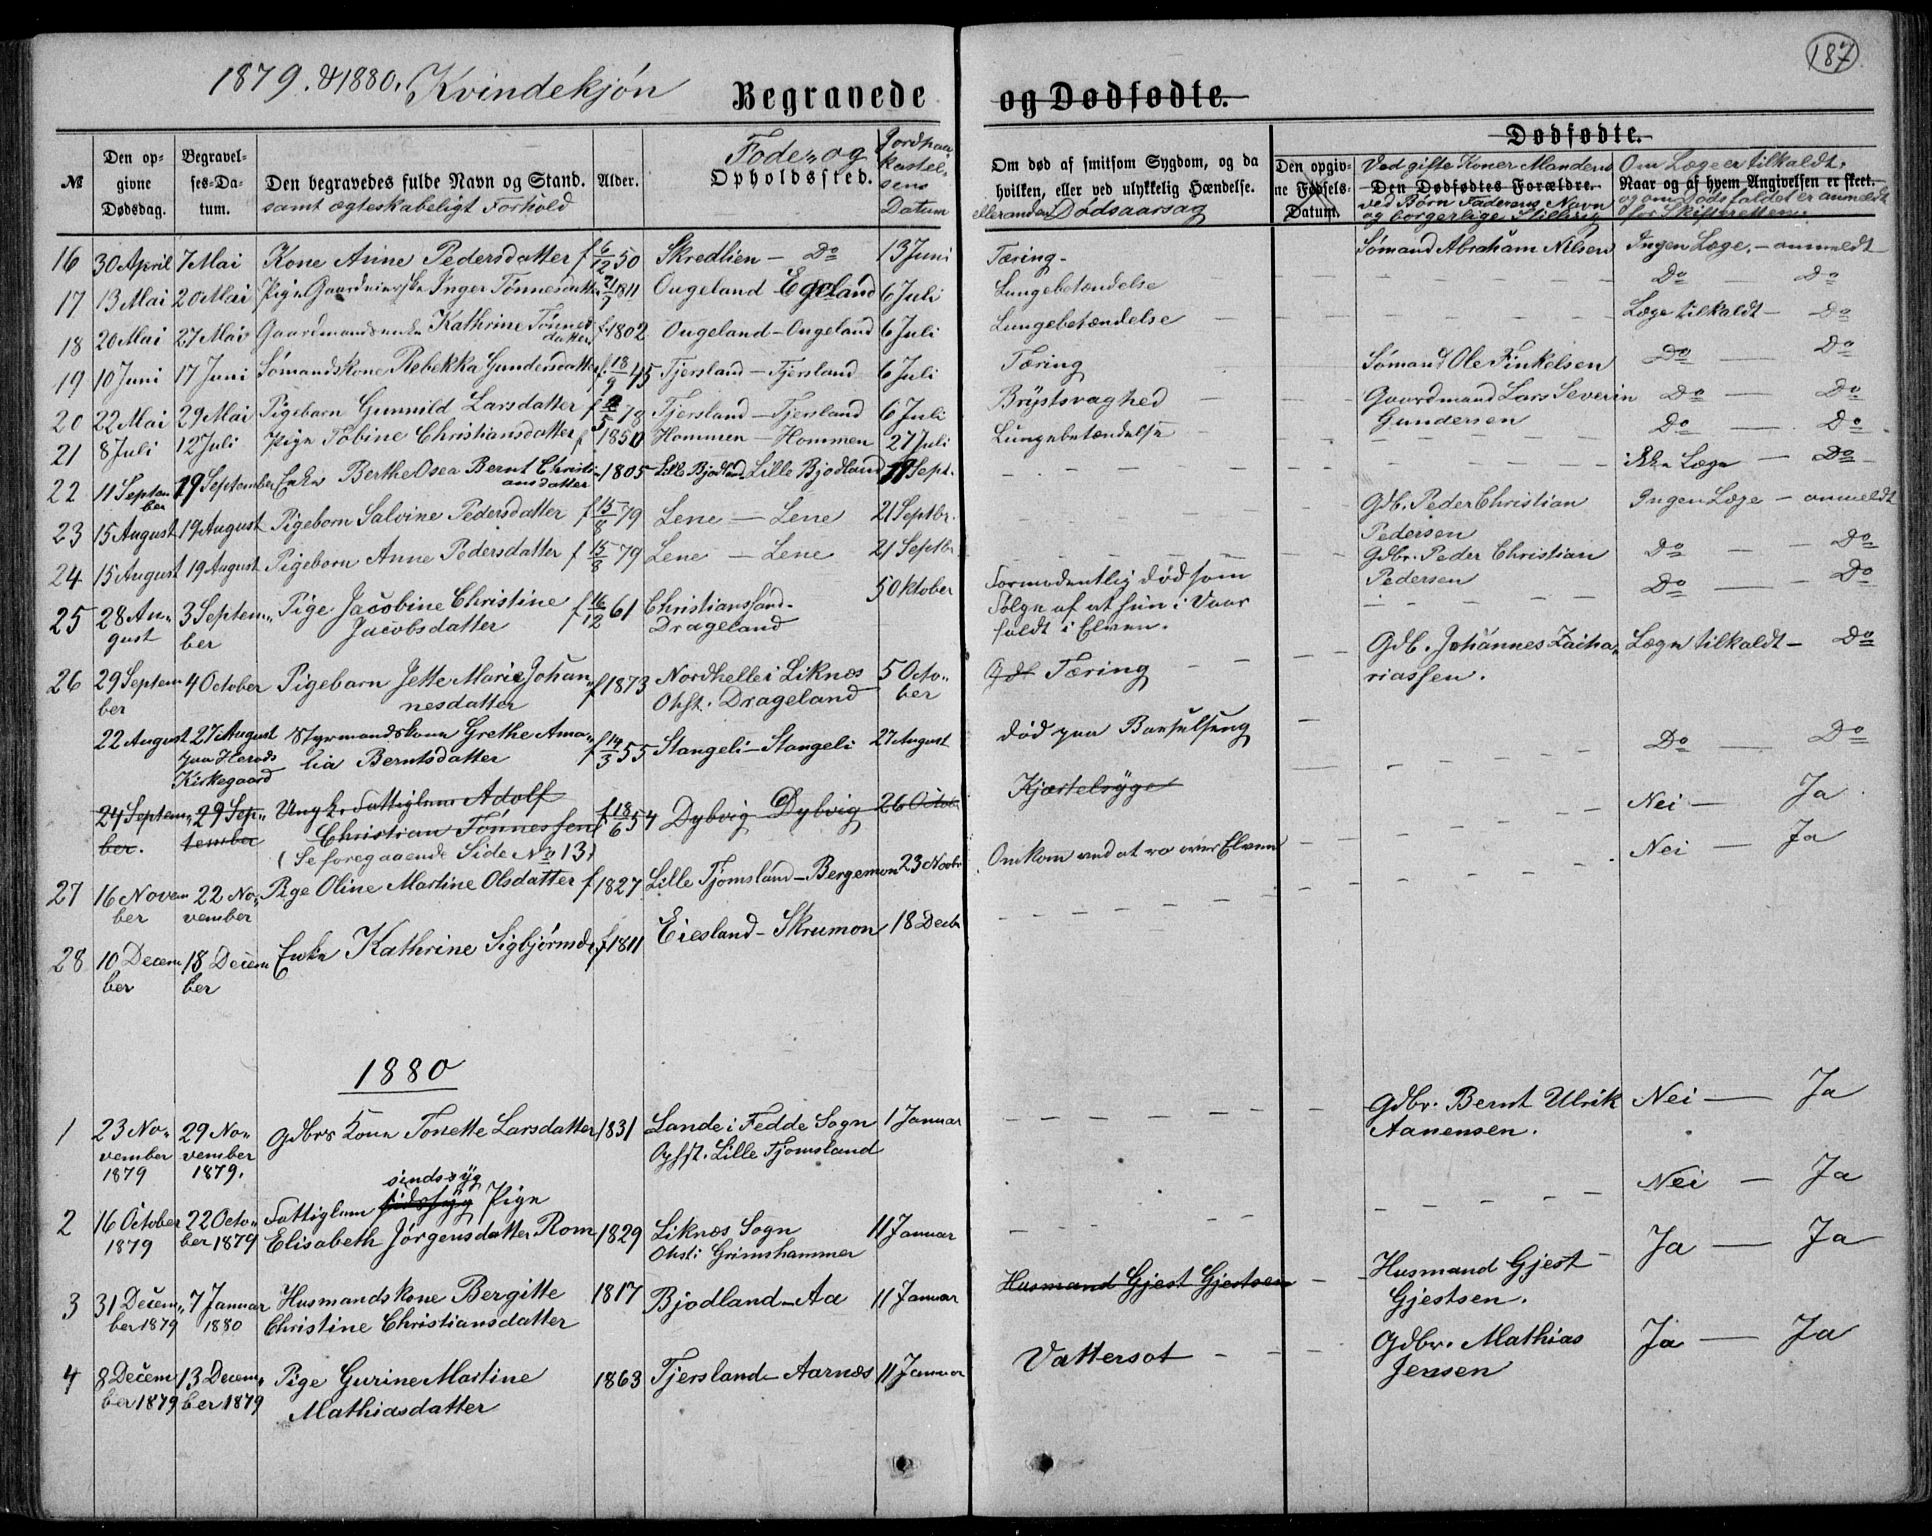 187
1879. & 1880. Kvindekjøn Begravede og Dødfødte.
№
Den opgivne Dødsdag.
Begravelses-Datum.
Den begravedes fulde Navn og Stand.
samt ægteskabeligt Forhold
Alder.
Føde- og
Opholdssted.
Jordpaakastelsens Datum
Om død af smitsom Sygdom, og da
hvilken, eller ved ulykkelig Hændelse.
eller anden Dødsaarsag
Den opgivne Fødsels-Datum.
Dødfødte.
Ved gifte Koner Mandens
Den Dødfødtes Forældre.
ved Børn Faderens Navn
og borgerlige Stilling
Om Læge er tilkaldt.
Naar og af hvem Angivelsen er skeet.
og om Dødsfaldet er anmeldt
for Skifteretten.
16 30 April 7 Mai Kone Anne Pedersdatter f 6/12 50 Skredlien - Do 13 Juni Tæring - Sømand Abraham Nilsen Ingen Læge. - anmeldt
17 13 Mai 20 Mai Pige Inger Tønnesdatter 1811 Ougeland - Egeland 6 Juli Lungebetændelse Do - Do
18 20 Mai 27 Mai Gaardmandsenke Kathrine Tønnesdatter f. 1802 Ougeland - Ougeland 6 Juli Lungebetændelse Læge tilkaldt - Do
19 10 Juni 17 Juni Sømandskone Rebekka Gundersdatter f. 18/9 45 Tjersland - Tjersland 6 Juli Tæring Sømand Ole Finkelsen Do - Do
20 22 Mai 29 Mai Pigebarn Gunnild Larsdatter f /5 78 Tjersland - Tjersland 6 Juli Brystsvaghed Gaardmand Lars Severin Do - Do
Gundersen
21 8 Juli 12 Juli Pige Tobine Christiansdatter f 1850 Hommen - Hommen 27 Juli Lungebetændelse Do - Do
22 11 September 19 September Enke Berthe Osea Bernt Christiansdatter 1805 Lille Bjodland Lille Bjodland 19 Sept. ikke Læge - Do
23 15 August 19 August Pigebarn Salvine Pedersdatter f 15/8 79 Lene - Lene 21 Septbr. Gdb. Peder Christian Ingen Læge - anmeldt
Pedersen
24 15 August 19 August Pigebarn Anne Pedersdatter f 15/8 79 Lene - Lene 21 Septbr Gdbr. Peder Christian Do - Do
Pedersen
25 28 August 3 September Pige Jacobine Christine f 16/12 61 Christianssand. 5 Oktober Formodentlig død som Do - Do
Jacobsdatter Drageland Følge af at hun i Vaar
faldt i Elven.
26 29 September 4 October Pigebarn Jette Marie Johannesdatter f 1873 Nordhelle i Liknæs 5 October Tæring Gdb. Johannes Zachariassen. Læge tilkaldt - Do
Ohst. Drageland
22 August 27 August Styrmandskone Grethe Amalia Berntsdatter f 14/3 55 Stangeli - Stangeli 27 August død paa Barselseng Do - Do
paa Herads
Kirkegaard
24 September. 29 September Ungk. Fattiglem Adolf f 18/6 54 Dybvig Dybvig 26 Octo. Kjærtelsyge Nei - Ja
Christian Tønnessen
(Se foregaaende Side No 13)
27 16 November 22 November Pige Oline Martine Olsdatter f 1827 Lille Tjomsland - Bergemon 23 Novbr Omkom ved at ro over Elven Nei - Ja
28 10 December 18 December Enke Kathrine Sigbjørnsd. f 1811 Eiesland - Skrumon 18 Decbr
1880
1 23 November 1879 29 November 1879. Gdbrs Kone Tonette Larsdatter 1831 Lande i Fedde Sogn 1 Januar Gdbr. Bernt Ulrik Nei - Ja
Ophst. Lille Tjomsland Aanensen.
sindssyg
2 16 October 1879 22 October 1879 Fattiglem sidssyg Pige
Elisabeth Jørgensdatter Rom 1829 Liknæs Sogn 11 Januar Nei - Ja
Ohst i Grimshammer
3 31 December 1879 7 Januar 1880 Husmandskone Bergitte 1817 Bjodland - Aa 11 Januar Husmand Gjest Gjestsen Husmand Gjest Ja - Ja
Christine Christiansdatter Gjestsen.
4 8 December 1879 13 December 1879 Pige Gurine Martine 1863 Tjersland - Aarnæs 11 Januar Vattersot Gdbr. Mathias Ja - Ja
Mathiasdatter Jensen